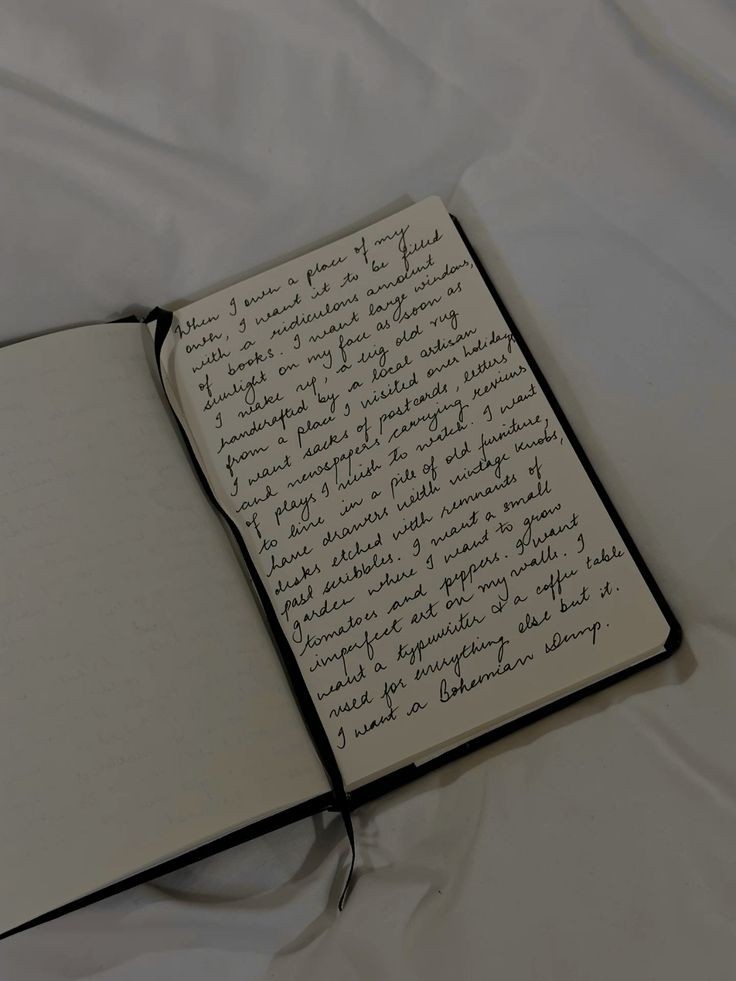 When I own a place of my
own, I want it to be filled
with a ridiculous amount
of books. I want large windows,
sunlight on my face as soon as
I wake up, a big old rug
handcrafted by a local artisan
from a place I visited over holidays,
I want sacks of postcards, letters
and newspapers carrying reviews
of plays I wish to watch. I want
to live in a pile of old furniture,
have drawers with vintage knobs,
desks etched with remnants of
past scribbles. I want a small
garden where I want to grow
tomatoes and peppers. I want
imperfect art on my walls. I
want a typewriter & a coffee table
used for everything else but it.
I want a Bohemian Dump.